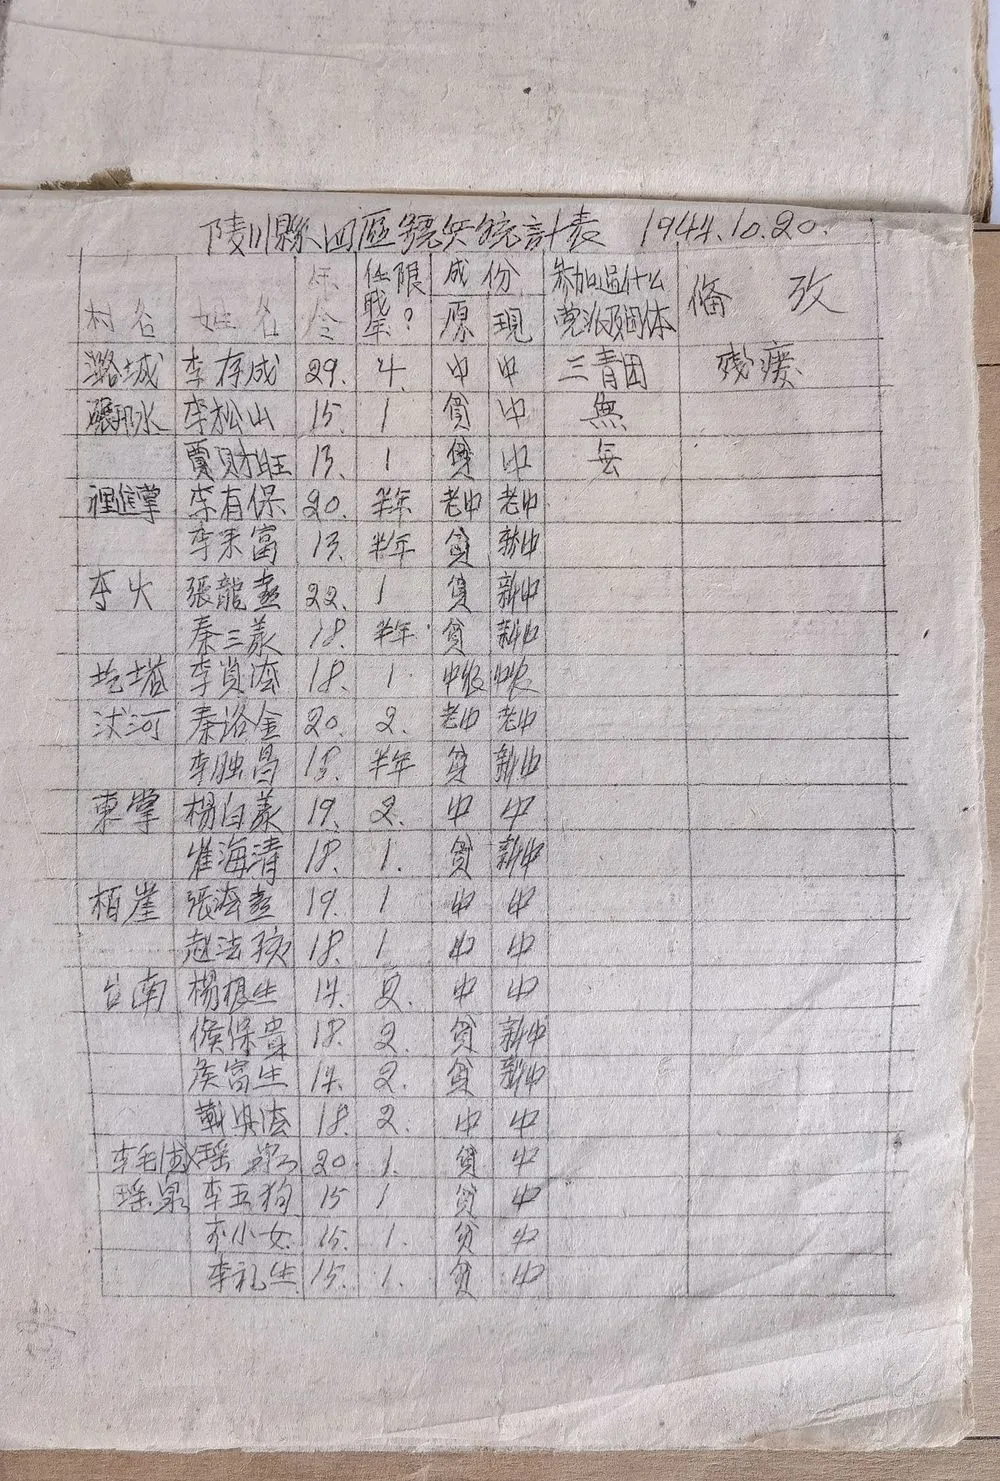 陵川縣四區號兵統計表 1944.10.20.
村名 姓名 年令 任職年限? 成份 原 現 参加過什么党派及团体 俻攷
潞城 李存成 29. 4. 中 中 三青团 残废
水 李松山 15. 1 貧 中 無
賈財旺 13. 1 貧 中 無
裡進掌 李有保 20. 半年 老中 老中
李来富 13. 半年 貧 新中
夺火 張龍 22. 1 貧 新中
秦三 18. 半年 貧 新中
圪塔 李 18. 1. 中农 中农
汏河 秦洛金 20. 2. 老中 老中
李 昌 18. 半年 貧 新中
東掌 楊白 19. 2. 中 中
崔海清 18. 1. 貧 新中
栢崖 張 19. 1 中 中
赵法孩 18. 1 中 中
台南 楊根生 17. 2. 中 中
侯保貴 18. 2. 貧 新中
侯富生 17. 2. 貧 新中
靳 18. 2. 中 中
李毛 瑶 20. 1. 貧 中
瑶泉 李五狗 15 1 貧 中
小女 15. 1. 貧 中
李礼生 15. 1. 貧 中